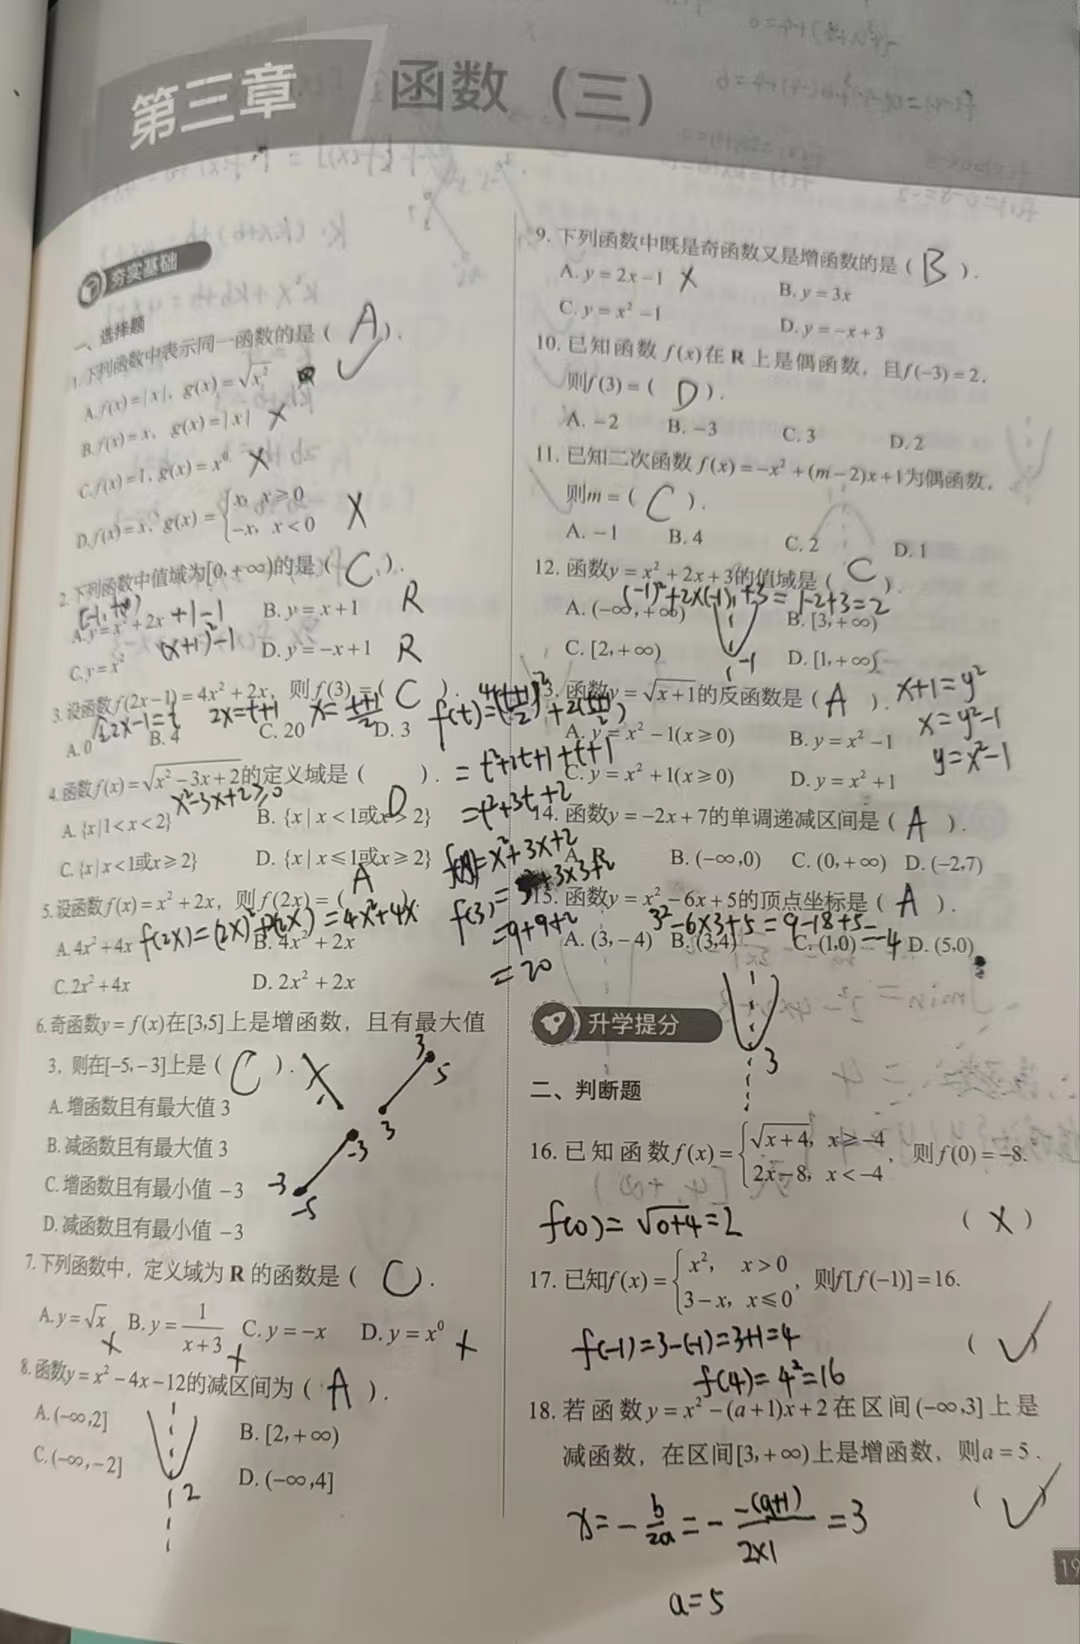 第三章 函数（三）
夯实基础
一、选择题
1.下列函数中表示同一函数的是（ A ）.
A.f(x)=|x|, g(x)=√x²
B.f(x)=x, g(x)=|x| ×
C.f(x)=1, g(x)=x⁰ ×
D.f(x)=x, g(x)={x, x≥0
-x, x<0 ×
2.下列函数中值域为[0,+∞)的是（ C ）.
A.y=x²+2x +1-1 B.y=x+1 R
(x+1)²-1
C.y=x² D.y=-x+1 R
3.设函数f(2x-1)=4x²+2x, 则f(3)=（ C ）.
2x-1=t 2x=t+1 x=(t+1)/2 f(t)=4((t+1)/2)²+2((t+1)/2)
A.0 B.4 C.20 D.3
=t²+2t+1+t+1
=t²+3t+2
f(x)=x²+3x+2
f(3)=3²+3×3+2
=9+9+2
=20
4.函数f(x)=√x²-3x+2的定义域是（ D ）.
x²-3x+2≥0
A.{x|1<x<2} B.{x|x<1或x>2}
C.{x|x<1或x≥2} D.{x|x≤1或x≥2}
5.设函数f(x)=x²+2x, 则f(2x)=（ A ）.
f(2x)=(2x)²+2(2x)=4x²+4x
A.4x²+4x B.4x²+2x
C.2x²+4x D.2x²+2x
6.奇函数y=f(x)在[3,5]上是增函数，且有最大值
3，则在[-5,-3]上是（ C ）.
A.增函数且有最大值 3
B.减函数且有最大值 3
C.增函数且有最小值 -3
D.减函数且有最小值 -3
3
5
3
-3
-3
-5
7.下列函数中，定义域为 R 的函数是（ C ）.
A.y=√x × B.y=1/(x+3) × C.y=-x D.y=x⁰ ×
8.函数y=x²-4x-12的减区间为（ A ）.
A.(-∞,2] B.[2,+∞)
C.(-∞,-2] D.(-∞,4]
2
9.下列函数中既是奇函数又是增函数的是（ B ）.
A.y=2x-1 × B.y=3x
C.y=x²-1 D.y=-x+3
10.已知函数 f(x)在 R 上是偶函数，且f(-3)=2,
则f(3)=（ D ）.
A.-2 B.-3 C.3 D.2
11.已知二次函数 f(x)=-x²+(m-2)x+1为偶函数，
则m=（ C ）.
A.-1 B.4 C.2 D.1
12.函数y=x²+2x+3的值域是（ C ）.
(-1)²+2×(-1)+3=1-2+3=2
A.(-∞,+∞) B.[3,+∞)
C.[2,+∞) D.[1,+∞)
-1
13.函数y=√x+1的反函数是（ A ）. x+1=y²
x=y²-1
y=x²-1
A.y=x²-1(x≥0) B.y=x²-1
C.y=x²+1(x≥0) D.y=x²+1
14.函数y=-2x+7的单调递减区间是（ A ）.
A.R B.(-∞,0) C.(0,+∞) D.(-2,7)
15.函数y=x²-6x+5的顶点坐标是（ A ）.
3²-6×3+5=9-18+5=-4
A.(3,-4) B.(3,4) C.(1,0) D.(5,0)
3
升学提分
二、判断题
16.已知函数f(x)={√x+4, x≥-4
2x-8, x<-4, 则f(0)=-8.
f(0)=√0+4=2 （ × ）
17.已知f(x)={x², x>0
3-x, x≤0, 则f[f(-1)]=16.
f(-1)=3-(-1)=3+1=4 （ √ ）
f(4)=4²=16
18.若函数y=x²-(a+1)x+2在区间(-∞,3]上是
减函数，在区间[3,+∞)上是增函数，则a=5.
（ √ ）
x=-b/2a=-(-(a+1))/(2×1)=3
a=5
19